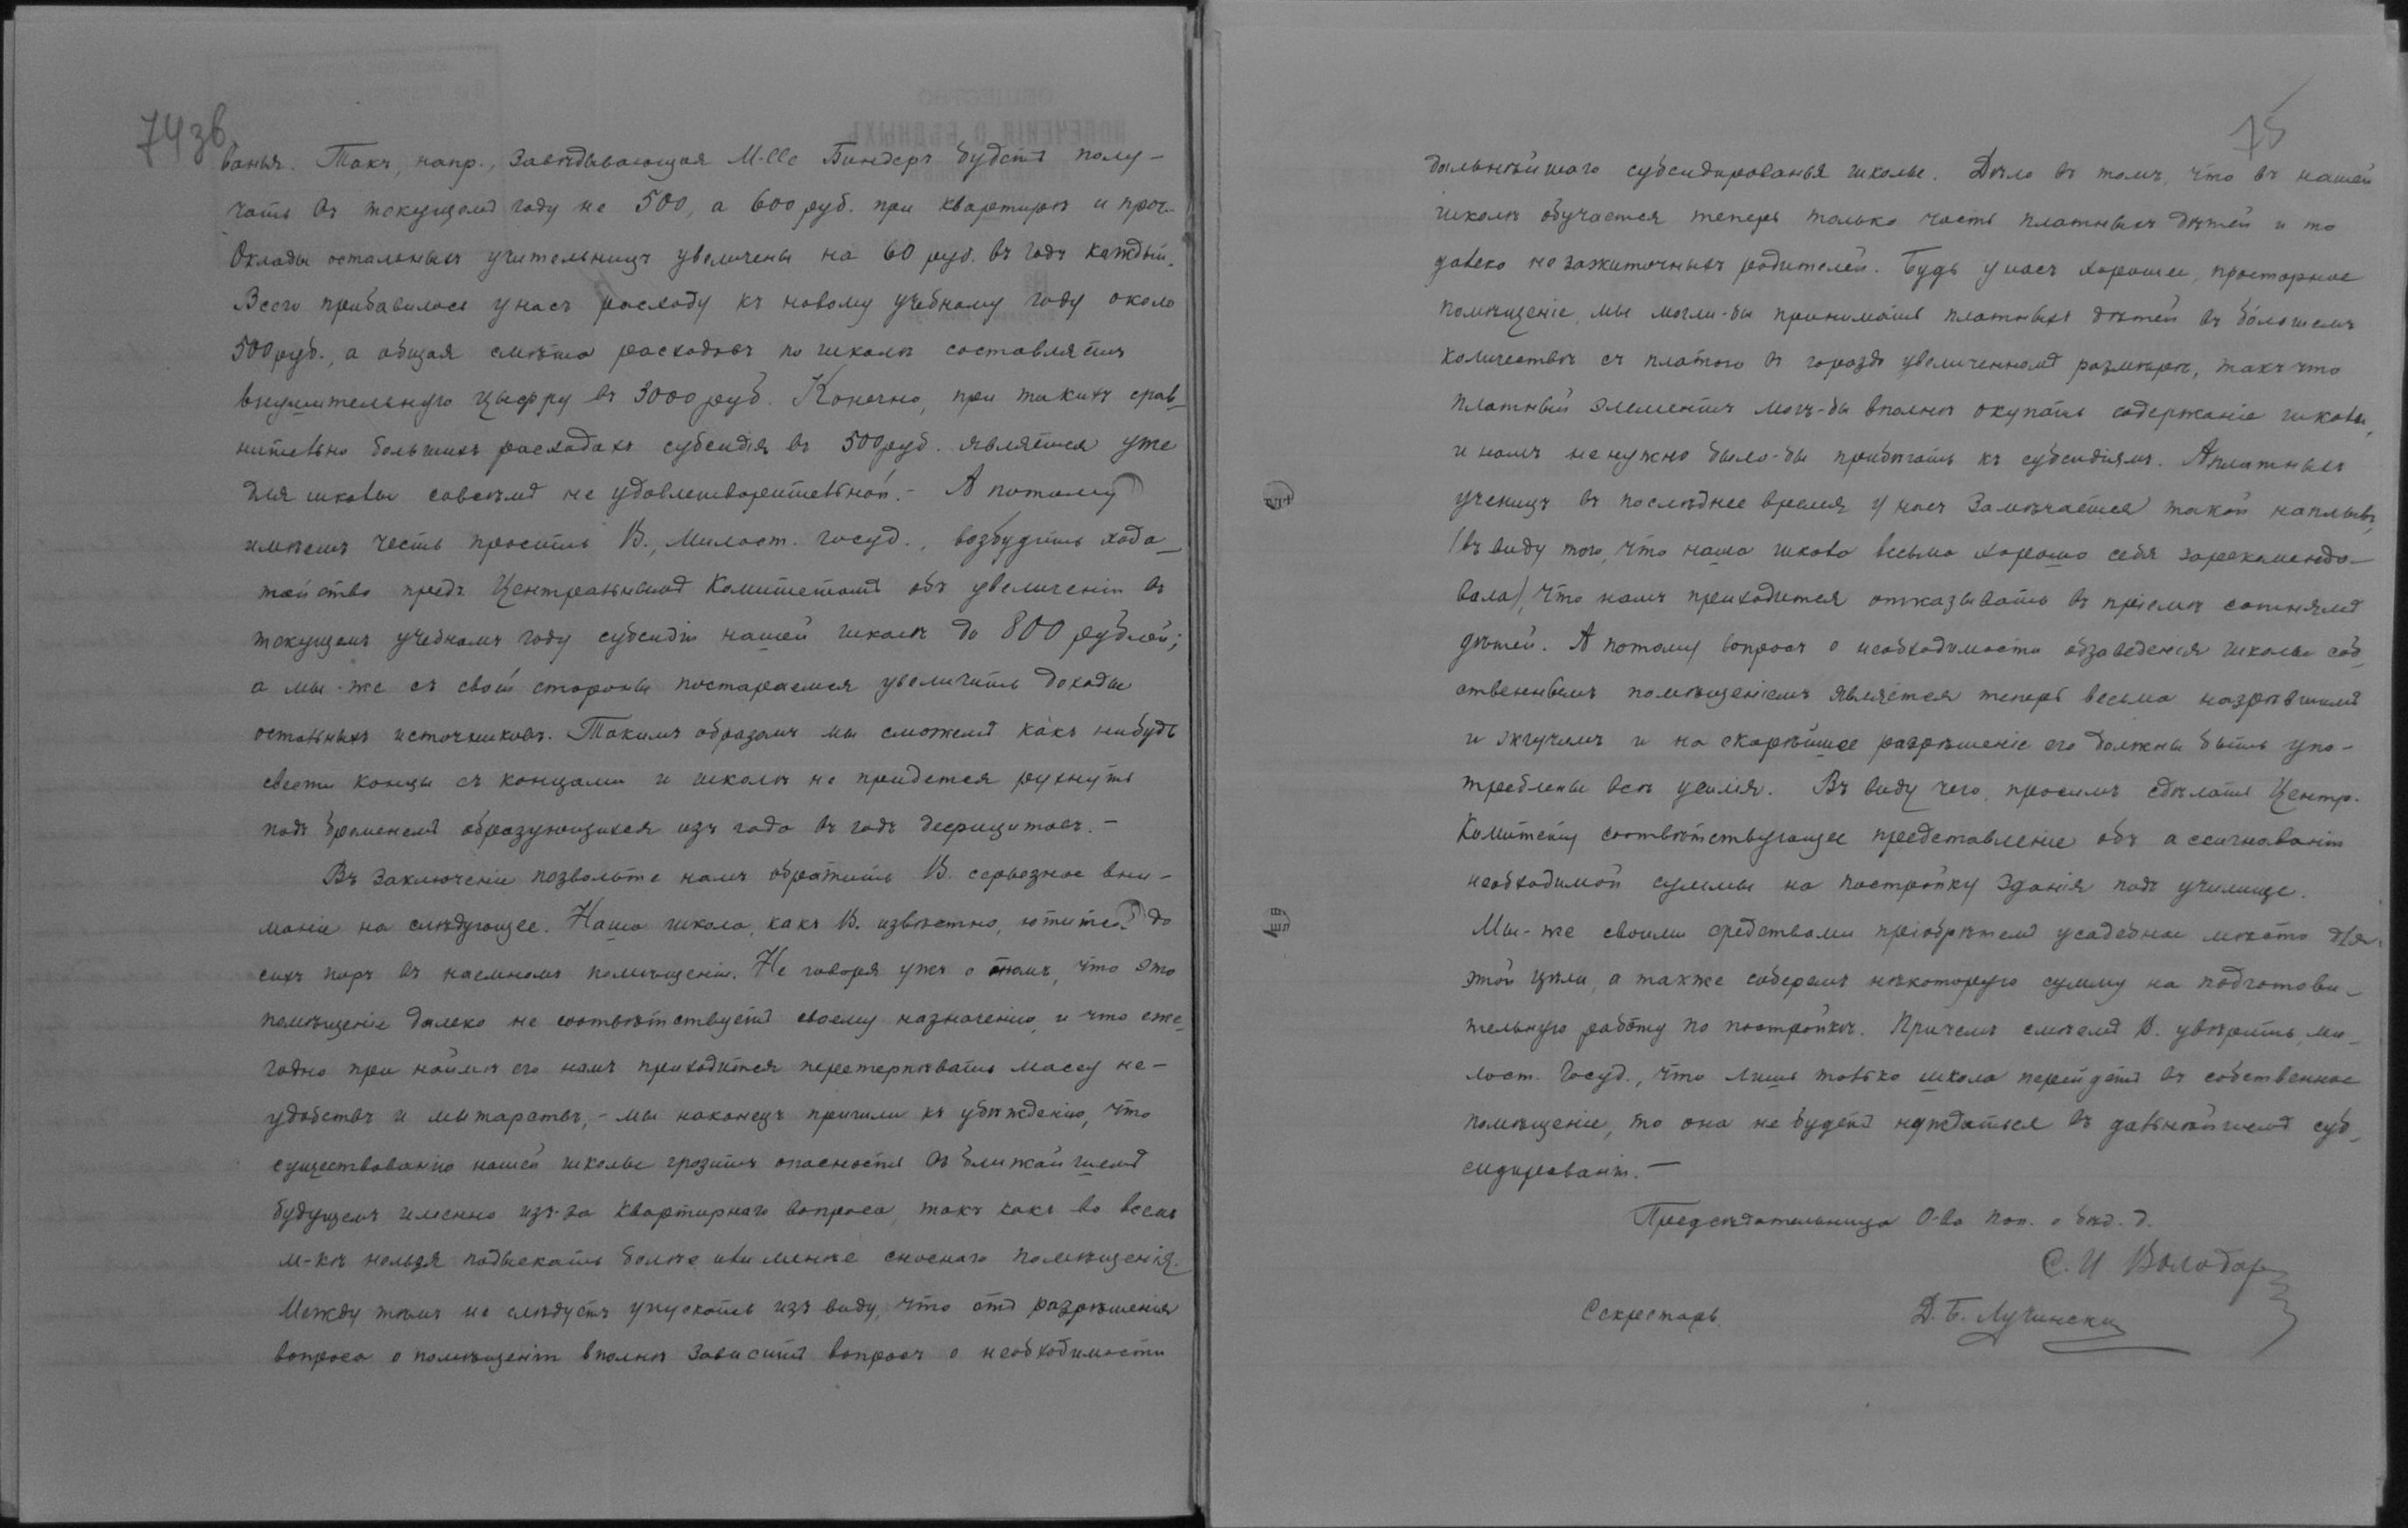 74 зв
ванья. Такъ, напр., завѣдывающая M-lle Биндеръ будетъ полу-
чать въ текущемъ году не 500, а 600 руб. при квартирѣ и проч.
Оклады остальныхъ учительницъ увеличены на 60 руб. въ годъ каждый.
Всего прибавилось у насъ расходу къ новому учебному году около
500 руб., а общая смѣта расходовъ по школѣ составляетъ
внушительную цыфру въ 3000 руб. Конечно, при такихъ срав-
нительно большихъ расходахъ субсидія въ 500 руб. является уже
для школы совсѣмъ не удовлетворительной. - А потому
имѣемъ честь просить В., Милост. Госуд., возбудить хода-
тайство предъ Центральнымъ Комитетомъ объ увеличеніи въ
текущемъ учебномъ году субсидіи нашей школѣ до 800 рублей;
а мы-же съ своей стороны постараемся увеличить доходы
остальныхъ источниковъ. Такимъ образомъ мы сможемъ какъ нибудь
свести концы съ концами и школѣ не придется рухнуть
подъ бременемъ образующихся изъ года въ годъ дефицитовъ. -
Въ заключеніе позвольте намъ обратить В. серьезное вни-
маніе на слѣдующее. Наша школа, какъ В. извѣстно, ютится до
сихъ поръ въ наемномъ помѣщеніи. Не говоря ужъ о томъ, что это
помѣщеніе далеко не соотвѣтствуетъ своему назначенію, и что еже-
годно при наймѣ его намъ приходится перетерпѣвать массу не-
удобствъ и мытарствъ, - мы наконецъ пришли къ убѣжденію, что
существованію нашей школы грозитъ опасность въ ближайшемъ
будущемъ именно изъ-за квартирнаго вопроса, такъ какъ во всемъ
м-кѣ нельзя подыскать болѣе или менѣе сноснаго помѣщенія.
Между тѣмъ не слѣдуетъ упускать изъ виду, что отъ разрѣшенія
вопроса о помѣщеніи вполнѣ зависитъ вопросъ о необходимости
75
дальнѣйшаго субсидированья школы. Дѣло въ томъ, что въ нашей
школѣ обучается теперь только часть платныхъ дѣтей и то
далеко не зажиточныхъ родителей. Будь у насъ хорошее, просторное
помѣщеніе, мы могли-бы принимать платныхъ дѣтей въ большемъ
количествѣ съ платою въ гораздо увеличенномъ размѣрѣ, такъ что
платный элементъ могъ-бы вполнѣ окупать содержаніе школы,
и намъ не нужно было-бы прибѣгать къ субсидіямъ. А платныхъ
ученицъ въ послѣднее время у насъ замѣчается такой наплывъ,
(въ виду того, что наша школа весьма хорошо себя зарекомендо-
вала), что намъ приходится отказывать въ пріемѣ сотнямъ
дѣтей. А потому вопросъ о необходимости обзаведенія школы соб-
ственнымъ помѣщеніемъ является теперь весьма назрѣвшимъ
и жгучимъ и на скорѣйшее разрѣшеніе его должны быть упо-
треблены всѣ усилія. Въ виду чего, просимъ сдѣлать Центр.
Комитету соотвѣтствующее представленіе объ ассигнованіи
необходимой суммы на постройку зданія подъ училище.
Мы-же своими средствами пріобрѣтемъ усадебное мѣсто для
этой цѣли, а также соберемъ нѣкоторую сумму на подготови-
тельную работу по постройкѣ. Причемъ смѣемъ В. увѣрить, ми-
лост. Госуд., что лишь только школа перейдетъ въ собственное
помѣщеніе, то она не будетъ нуждаться въ дальнѣйшемъ суб-
сидированіи. -
Предсѣдательница О-ва поп. о бѣд. д.
С. И Володар
Секретарь Д. Б. Лучински